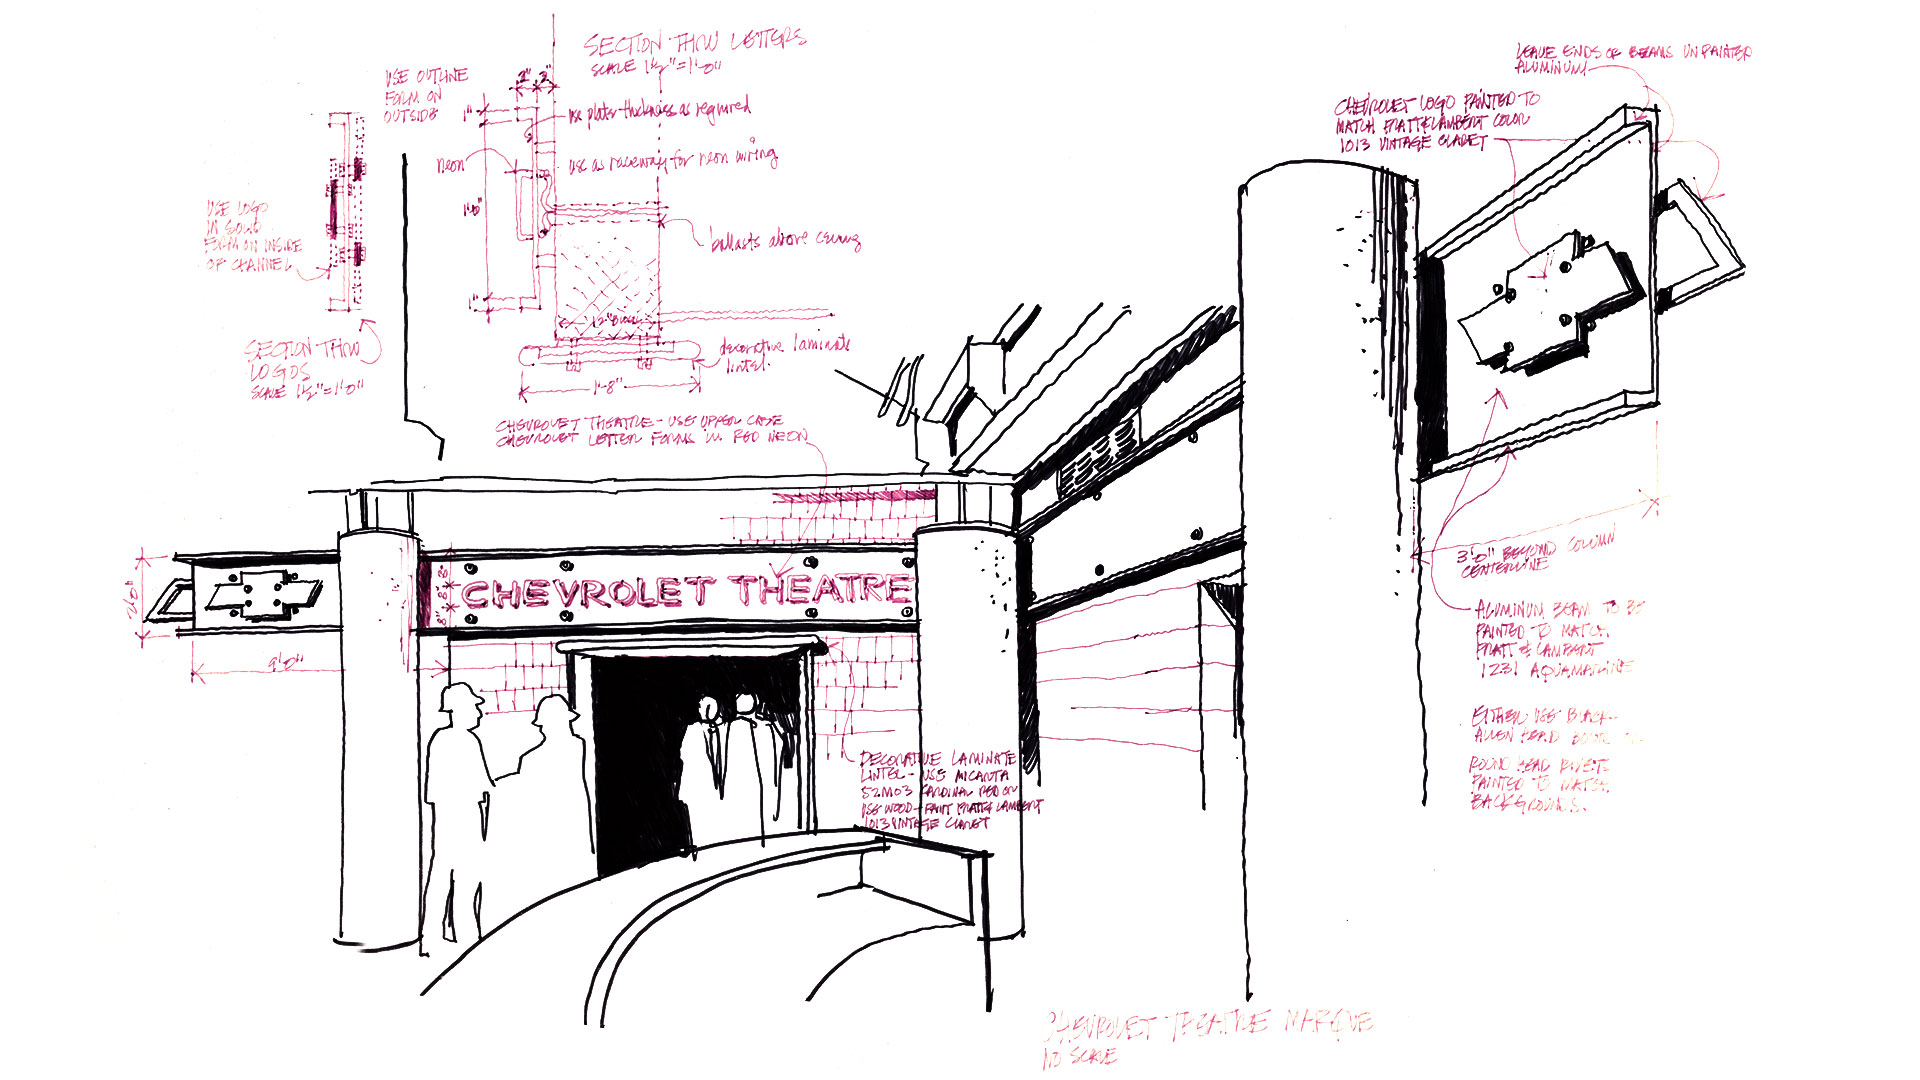 SECTION THRU LETTERS
SCALE 1½"=1'-0"
USE OUTLINE
FORM ON
OUTSIDE
2" 2"
1"
use plate thickness as required
neon
use as raceway for neon wiring
1'-0"
ballasts above ceiling
1"
12" BLOCK
decorative laminate
lintel
1'-8"
USE LOGO
IN SOLID
FORM ON INSIDE
OF CHANNEL
SECTION THRU
LOGOS
SCALE 1½"=1'-0"
CHEVROLET THEATRE - USE UPPER CASE
CHEVROLET LETTER FORMS IN RED NEON
LEAVE ENDS OF BEAMS UNPAINTED
ALUMINUM
CHEVROLET LOGO PAINTED TO
MATCH PRATT & LAMBERT COLOR
1013 VINTAGE CLARET
2'-0"
8" 8" 8"
CHEVROLET THEATRE
9'-0"
3'-0" BEYOND COLUMN
CENTERLINE
ALUMINUM BEAM TO BE
PAINTED TO MATCH
PRATT & LAMBERT
1231 AQUAMARINE
EITHER USE BLACK
ALLEN HEAD
ROUND HEAD RIVETS
PAINTED TO MATCH
BACKGROUNDS.
DECORATIVE LAMINATE
LINTEL - USE MICARTA
52M03 CARDINAL RED OR
USE WOOD - PAINT PRATT & LAMBERT
1013 VINTAGE CLARET
CHEVROLET THEATRE MARQUE
NO SCALE